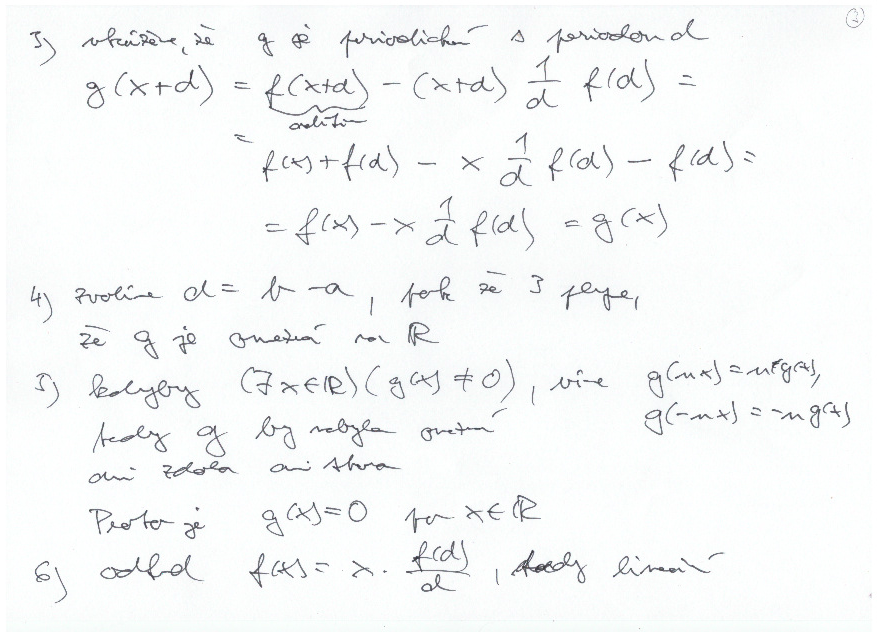 ②
3) ukážeme, že g je periodická s periodou d
g(x+d) = f(x+d) - (x+d) 1/d f(d) =
aditivní
= f(x) + f(d) - x 1/d f(d) - f(d) =
= f(x) - x 1/d f(d) = g(x)
4) zvolíme d = b - a, pak ze 3 plyne,
že g je omezená na ℝ
5) kdyby (∃x∈ℝ)(g(x) ≠ 0), víme g(nx) = n g(x),
g(-nx) = -n g(x)
tedy g by nebyla omezená
ani zdola ani shora
Proto je g(x) = 0 pro x∈ℝ
6) odtud f(x) = x · f(d)/d, tedy lineární